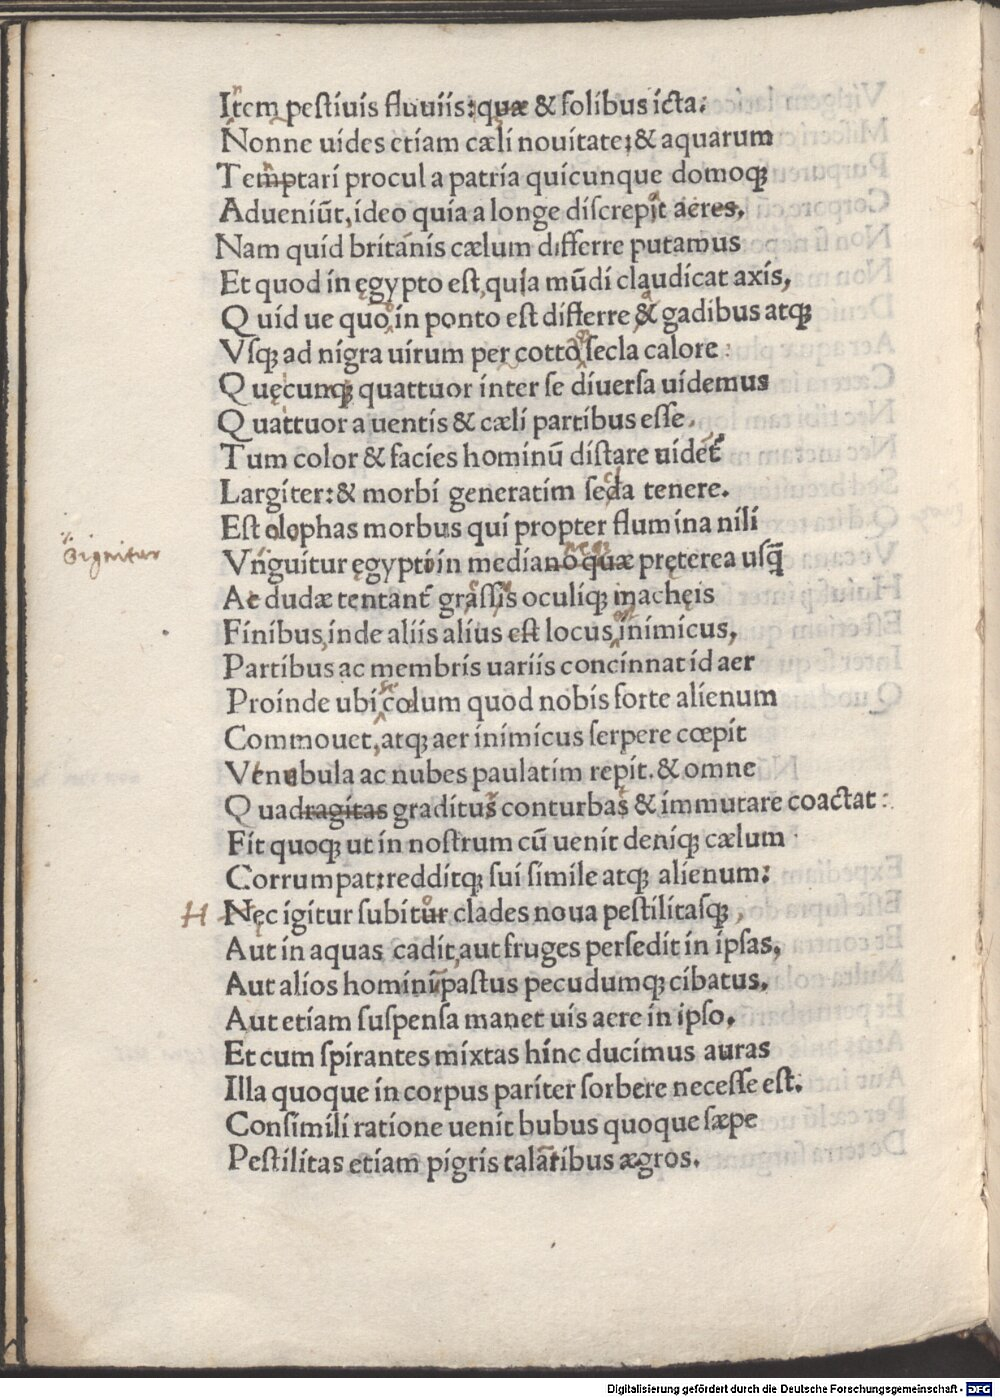 Item pestiuis fluuiis: quæ & solibus icta:
Nonne uides etiam cæli nouitate: & aquarum
Temptari procul a patria quicunque domoqꝫ
Adueniūt, ideo quia a longe discrepit aeres.
Nam quid britanis cælum differre putamus
Et quod in ęgypto est, quia mūdi claudicat axis,
Quid ue quo in ponto est differre & gadibus atqꝫ
Vsqꝫ ad nigra uirum per cotto secla calore:
Quęcunqꝫ quattuor inter se diuersa uidemus
Quattuor a uentis & cæli partibus esse.
Tum color & facies hominū distare uidet᷑
Largiter: & morbi generatim secla tenere.
Est elophas morbus qui propter flumina nili
Dignitur
Vnguitur ęgypto in media no quæ pręterea usq̄
Ac dudæ tentant᷑ grassis oculiqꝫ in achęis
Finibus, inde aliis alius est locus inimicus,
Partibus ac membris uariis concinnat id aer
Proinde ubi colum quod nobis forte alienum
Commouet, atqꝫ aer inimicus serpere cœpit
Venubula ac nubes paulatim repit. & omne
Quadragitas graditus conturbas & immutare coactat:
Fit quoqꝫ ut in nostrum cū uenit deniqꝫ cælum
Corrumpat: redditqꝫ sui simile atqꝫ alienum:
H Nęc igitur subitur clades noua pestilitasqꝫ,
Aut in aquas cadit, aut fruges persedit in ipsas,
Aut alios hominū pastus pecudumqꝫ cibatus,
Aut etiam suspensa manet uis aere in ipso,
Et cum spirantes mixtas hinc ducimus auras
Illa quoque in corpus pariter sorbere necesse est.
Consimili ratione uenit bubus quoque sæpe
Pestilitas etiam pigris talantibus ægros.
Digitalisierung gefördert durch die Deutsche Forschungsgemeinschaft - DFG